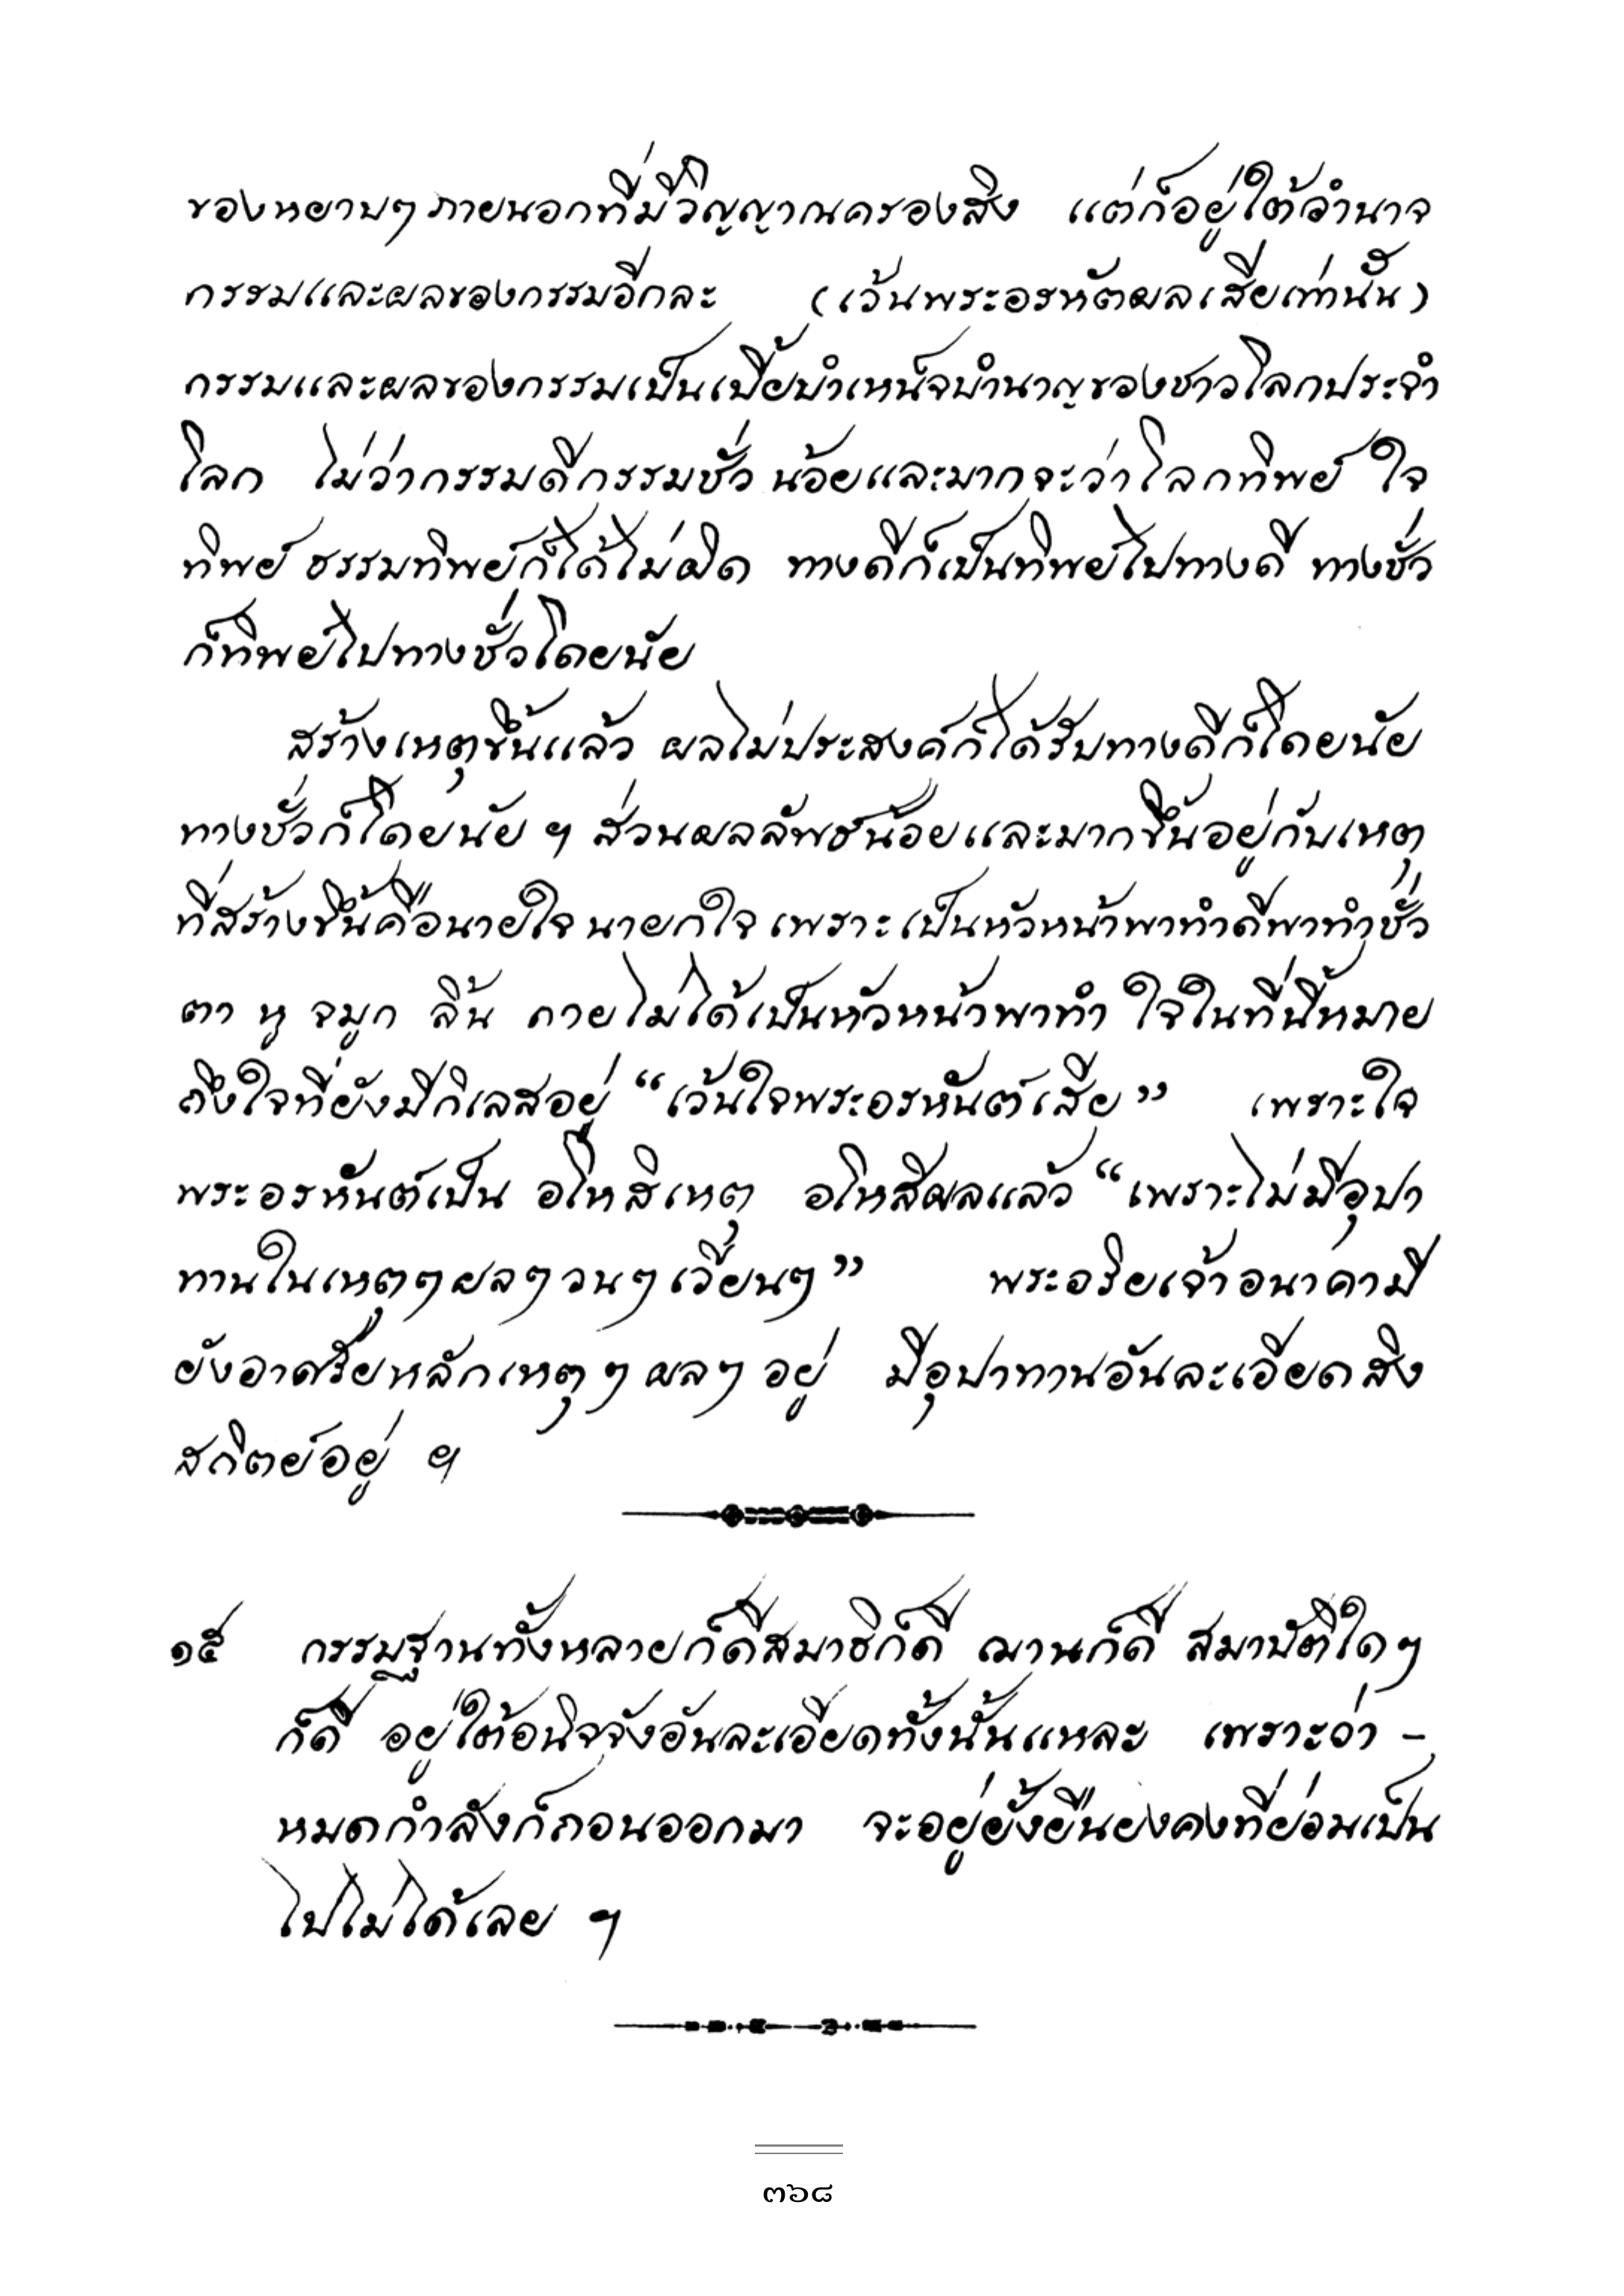 ของหยาบๆ ภายนอกที่มีวิญญาณครองสิง แต่ก็อยู่ใต้อำนาจ
กรรมและผลของกรรมอีกละ (เว้นพระอรหัตผลเสียเท่านั้น)
กรรมและผลของกรรมเป็นเบี้ยบำเหน็จบำนาญของชาวโลกประจำ
โลก ไม่ว่ากรรมดีกรรมชั่ว น้อยและมากจะว่าโลกทิพย์ ใจ
ทิพย์ ธรรมทิพย์ก็ได้ไม่ผิด ทางดีก็เป็นทิพย์ไปทางดี ทางชั่ว
ก็ทิพย์ไปทางชั่วโดยนัย
สร้างเหตุขึ้นแล้ว ผลไม่ประสงค์ก็ได้รับทางดีก็โดยนัย
ทางชั่วก็โดยนัย ฯ ส่วนผลลัพธ์น้อยและมากขึ้นอยู่กับเหตุ
ที่สร้างขึ้นคือนายใจ นายกใจ เพราะเป็นหัวหน้าพาทำดีพาทำชั่ว
ตา หู จมูก ลิ้น กายไม่ได้เป็นหัวหน้าพาทำ ใจในที่นี้หมาย
ถึงใจที่ยังมีกิเลสอยู่ “เว้นใจพระอรหันต์เสีย” เพราะใจ
พระอรหันต์เป็น อโหสิเหตุ อโหสิผลแล้ว “เพราะไม่มีอุปา
ทานในเหตุๆ ผลๆ วนๆ เวียนๆ” พระอริยเจ้าอนาคามี
ยังอาศรัยหลักเหตุๆ ผลๆ อยู่ มีอุปาทานอันละเอียดสิง
สถิตย์อยู่ ฯ
๑๕ กรรมฐานทั้งหลายก็ดีสมาธิก็ดี ฌานก็ดี สมาบัติใดๆ
ก็ดี อยู่ใต้อนิจจังอันละเอียดทั้งนั้นแหละ เพราะว่า -
หมดกำลังก็ถอนออกมา จะอยู่ยั้งยืนยงคงที่ย่อมเป็น
ไปไม่ได้เลย ฯ
๓๖๘